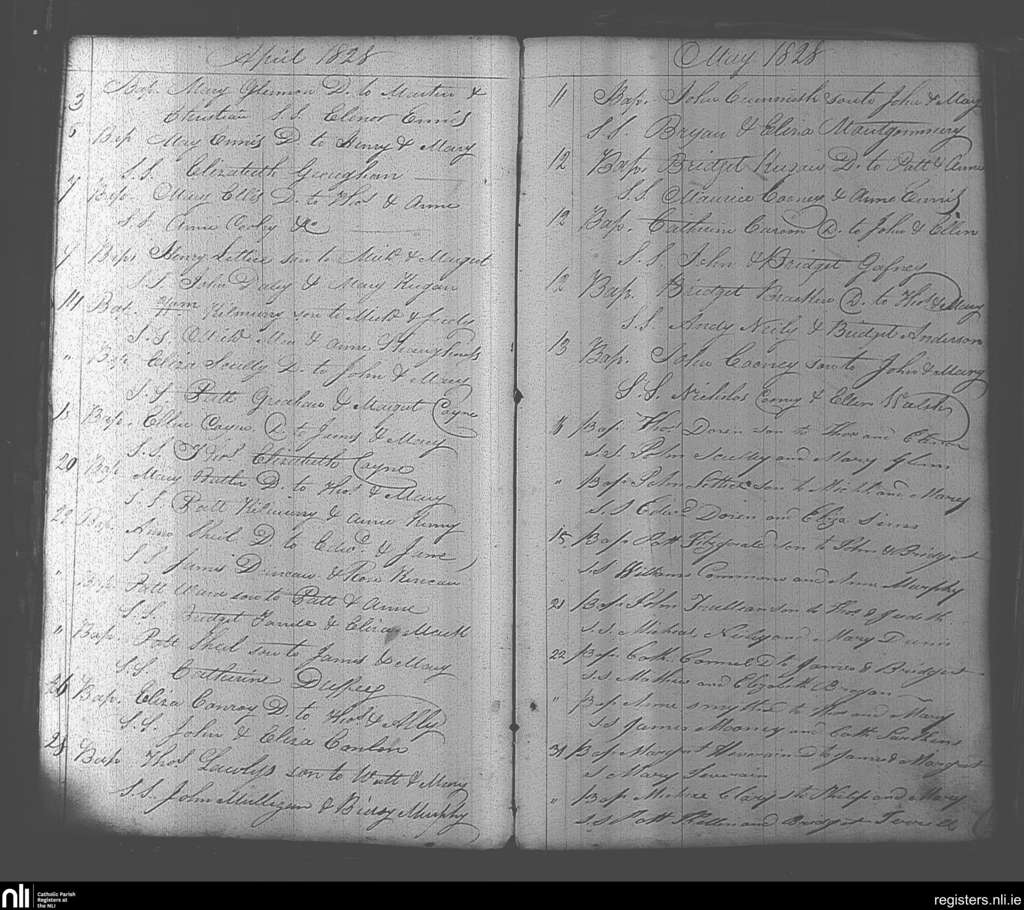 April 1828
3 Bap. Mary Glennon D. to Martin &
Christian S.S. Elenor Ennis
6 Bap Mary Ennis D. to Henry & Mary
S.S. Elizabeth Geoughan
7 Bap. Mary Ellis D. to Thos & Anne
S.S. Anne Cooley &c
9 Bap. Henry Lettice son to Michl & Margret
S.S. John Daly & Mary Keegan
14 Bap. Wm Kilmurry son to Michl &
S.S. & Anne
" Bap. Eliza Scully D. to John & Mary
S.S. Patt & Margret Coyne
Bap. Ellen Coyne D. to James & Mary
S.S. Thos Elizabeth Coyne
20 Bap Mary Butler D. to Thos & Mary
S.S. Patt Kilmurry & Anne Kenny
22 Bap. Anne Sheil D. to Edwd & Jane
S.S. James Duncan & Rose
" Bap Patt son to Patt & Anne
S.S. Bridget & Eliza
" Bap. Patt Sheil son to James & Mary
S.S. Catherine Duffrey
26 Bap. Eliza Conroy D. to Thos & Ally
S.S. John & Eliza Conlon
28 Bap Thos Lawlys son to Watt & Mary
S.S. John Mulligan & Bissy Murphy
May 1828
11 Bap. John Cummish son to John & Mary
S.S. Bryan & Eliza Montgommery
12 Bap. Bridget D. to Patt & Anne
S.S. Maurice Cooney & Anne Ennis
12 Bap. Catherine Caroon D. to John & Ellen
S.S. John & Bridget Gafney
12 Bap. Bridget Bracken D. to Thos & Mary
S.S. Andy Neily & Bridget Anderson
13 Bap. John Cooney son to John & Mary
S.S. Nicholos Conny & Ellen Walsh
Bap. Thos Doren son to Thos and
S.S. John Scully and Mary Glenn
" Bap John Lettice son to Michl and Mary
S.S Edwd Doren and Eliza
15 Bap Patt Fitzgerald son to John & Bridget
S.S Williams Commons and Anne Murphy
21 Bap. John son to Thos & Judeth
S.S. Micheal Neily and Mary Dunn
22 Bap. Cath. Connel D to James & Bridget
S.S Mathew and Elizabeth Bryan
" Bap Anne Smyth D to Thos and Mary
SS James Mooney and Cath.
31 Bap Margret D to James & Margret
S Mary
" Bap Micheal Clary s to Philip and Mary
S.S Patt and Bridget
nli
Catholic Parish
Registers at
the NLI
registers.nli.ie